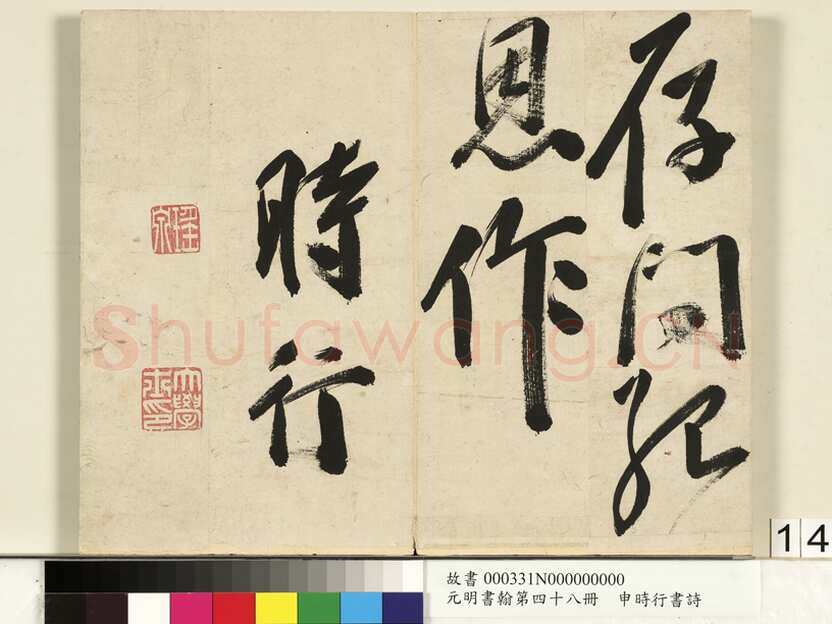 存問紀
恩作
時行
瑤泉
大學士印
Shufawang.CN
14
故書 000331N000000000
元明書翰第四十八冊 申時行書詩